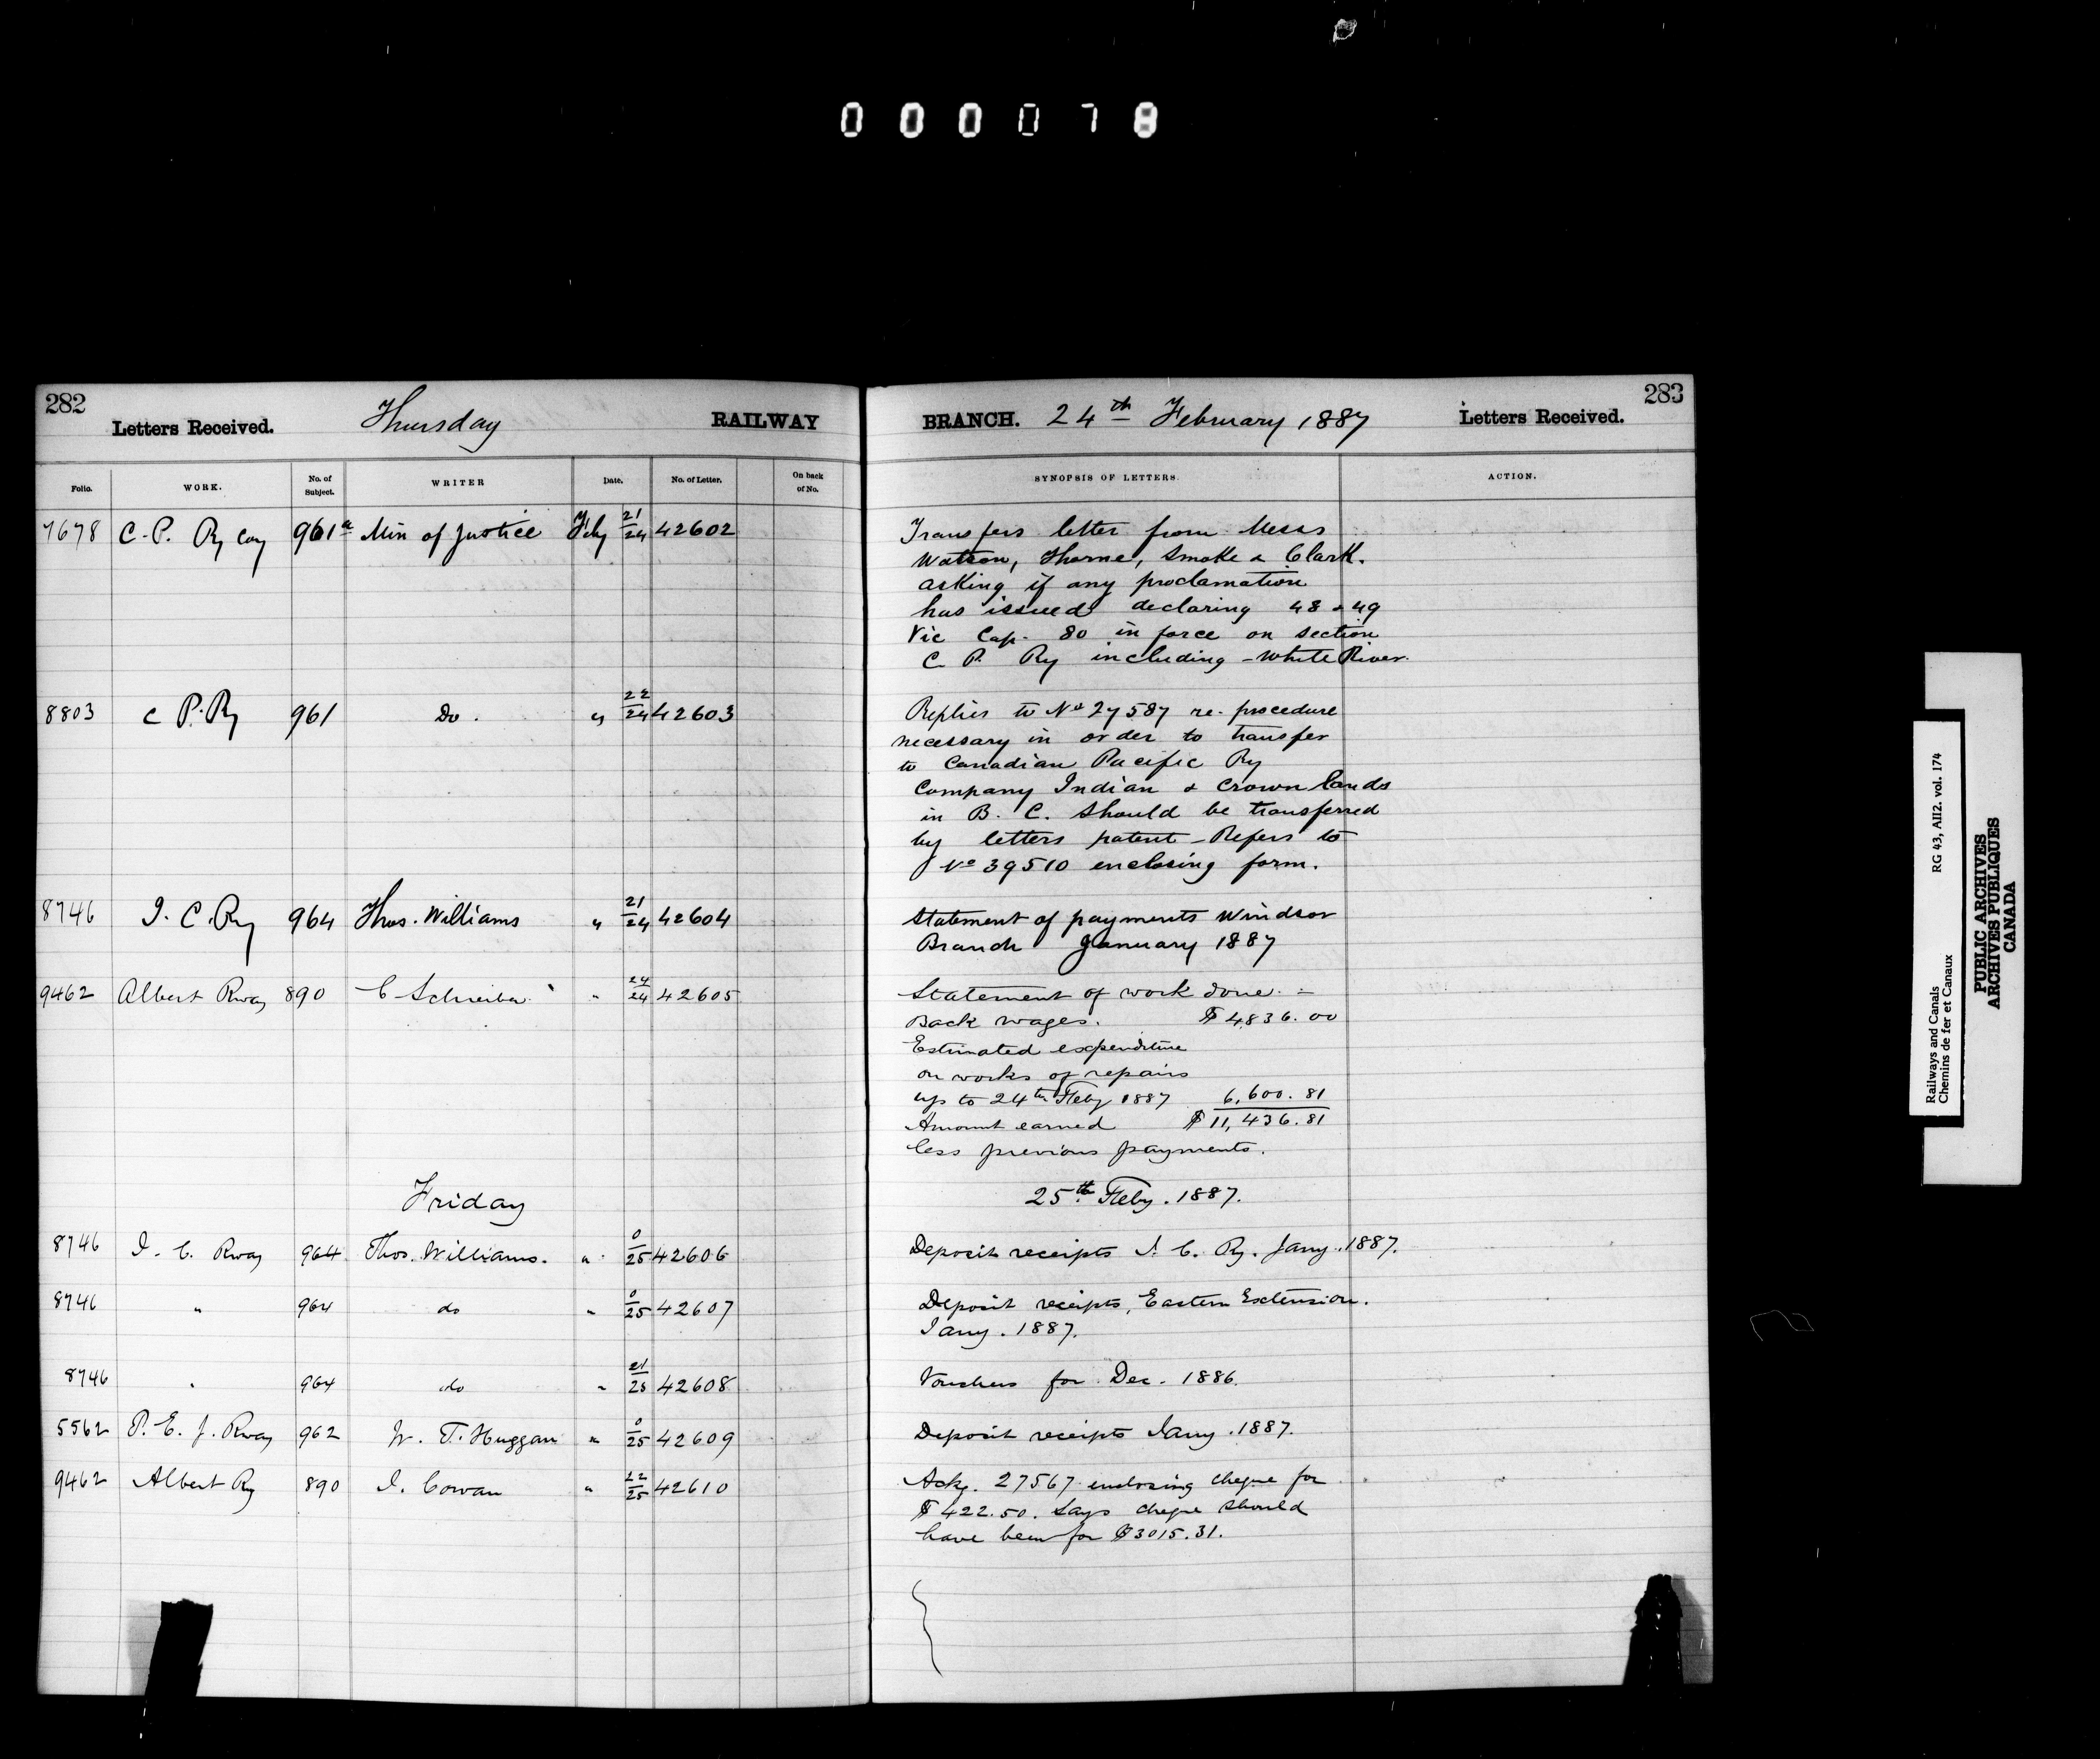 000078
282
Letters Received.
Thursday
RAILWAY
Folio.
WORK.
No. of Subject.
WRITER
Date.
No. of Letter.
On back of No.
7678 C.P. Ry Coy 961a Min of Justice Feby 21/24 42602
8803 C P. Ry 961 Do. " 22/24 42603
8746 I. C. Ry 964 Thos. Williams " 21/24 42604
9462 Albert Rway 890 C Schreiber " 24/24 42605
Friday
8746 I. C. Rway 964 Thos. Williams. " 0/25 42606
8746 " 964 do " 0/25 42607
8746 " 964 do " 21/25 42608
5562 P. E. I. Rway 962 W. T. Huggan " 0/25 42609
9462 Albert Ry 890 I. Cowan " 22/25 42610
283
BRANCH. 24th February 1887
Letters Received.
SYNOPSIS OF LETTERS.
ACTION.
Transfers letter from Messs
Watson, Thorne, Smoke & Clark.
asking if any proclamation
has issued declaring 48 & 49
Vic Cap. 80 in force on section
C. P. Ry including - White River.
Replies to No 27587 re. procedure
necessary in order to transfer
to Canadian Pacific Ry
Company Indian & Crown lands
in B. C. should be transferred
by letters patent - Refers to
No 39510 enclosing form.
Statement of payments Windsor
Branch January 1887
Statement of work done. -
Back wages. $4,836.00
Estimated expenditure
on works of repairs
up to 24th Feby 1887 6,600.81
Amount earned $11,436.81
less previous payments.
25th Feby. 1887.
Deposit receipts I. C. Ry. Jany. 1887.
Deposit receipts, Eastern Extension.
Jany. 1887.
Vouchers for Dec. 1886.
Deposit receipts Jany. 1887.
Ackg. 27567 enclosing cheque for
$422.50. Says cheque should
have been for $3015.31.
Railways and Canals RG 43, AII2. vol. 174
Chemins de fer et Canaux
PUBLIC ARCHIVES
ARCHIVES PUBLIQUES
CANADA